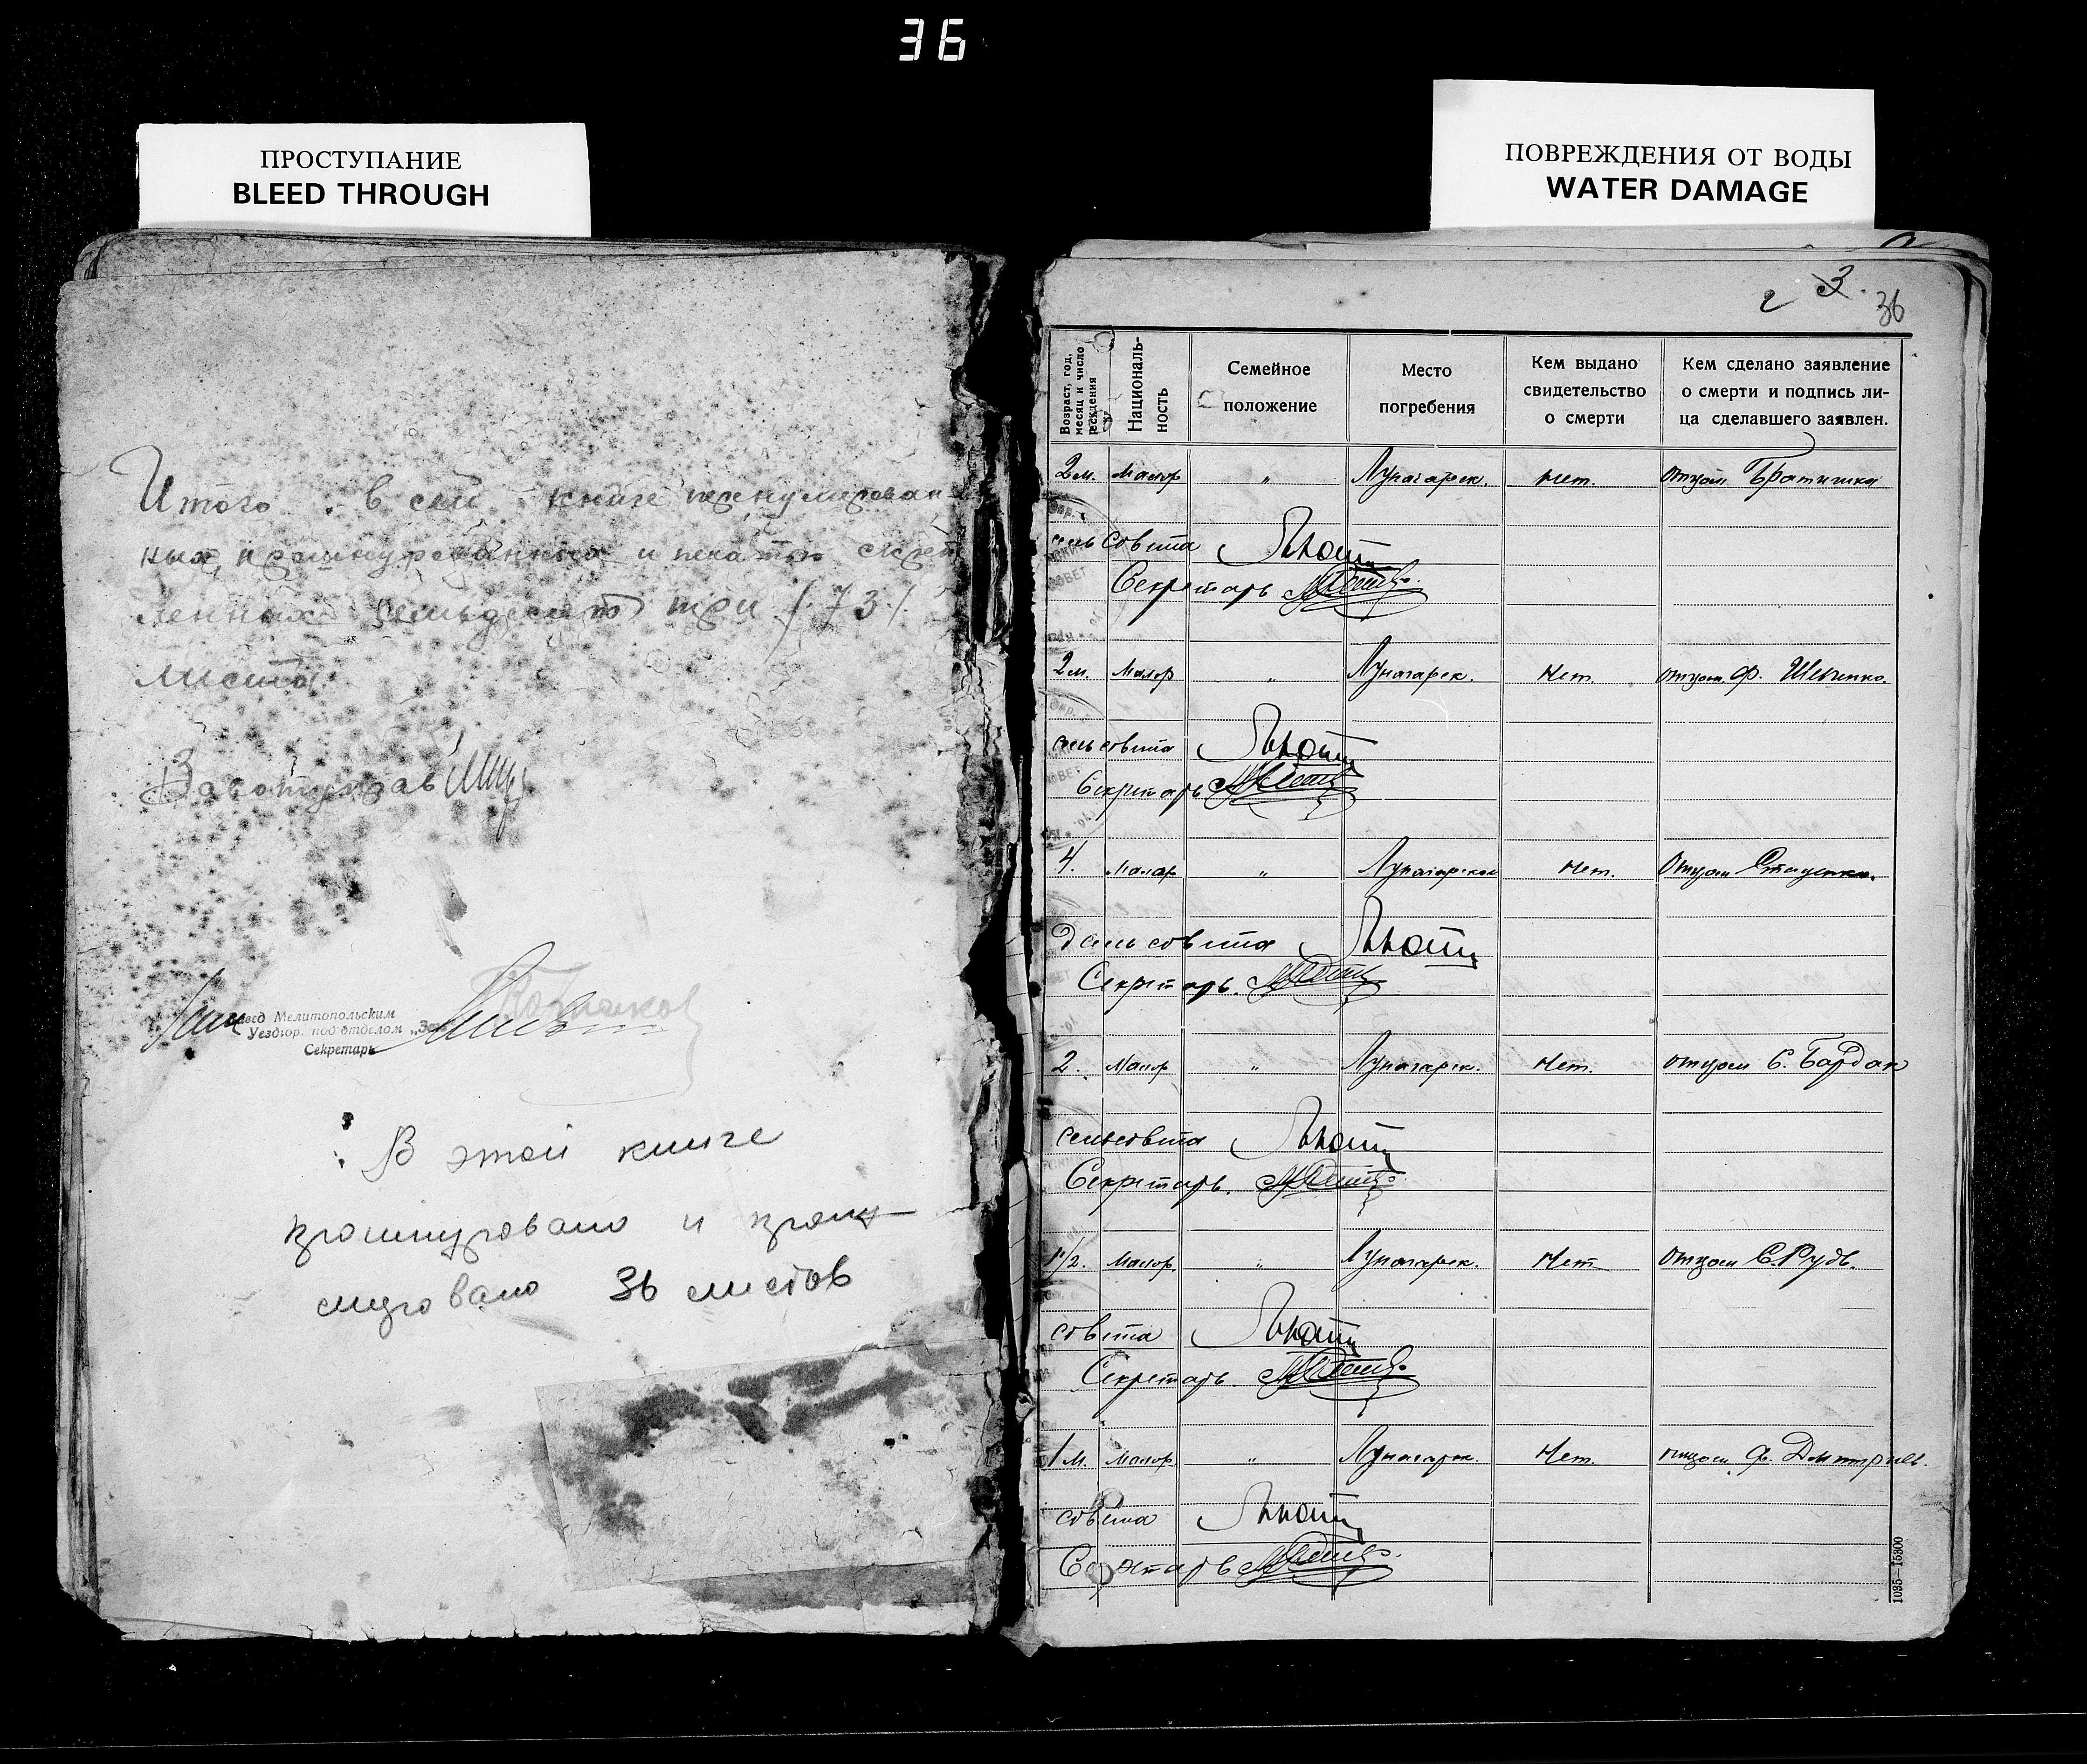 36
ПРОСТУПАНИЕ
BLEED THROUGH
ПОВРЕЖДЕНИЯ ОТ ВОДЫ
WATER DAMAGE
Итого в сей книге перенумерован
ных, прошнурованных и печатью скреп
ленных семьдесят три /73/
листа.
Завотуправ
Завед Мелитопольским
Уездгор. под'отделом
Секретарь
В этой книге
прошнуровано и прону
меровано 36 листов
3.
36
Возраст, год, месяц и число рождения
Националь-
ность
Семейное
положение
Место
погребения
Кем выдано
свидетельство
о смерти
Кем сделано заявление
о смерти и подпись ли-
ца сделавшего заявлен.
2 м. Малор " нет. отцом Братишка
сельсовета
Секретарь
2 м. Малор " Нет. отцом Ф. Шевченко.
сельсовета
Секретарь
4. Малор " Нет. Отцом
сельсовета
Секретарь.
2. Малор " Нет. отцом С. Бардак
сельсовета
Секретарь.
1 1/2. Малор. " Нет отцом С. Рудь.
совета
Секретарь.
1 м. Малор " Нет. отцом Ф. Дмитриев.
совета
Секретарь
1035—15800